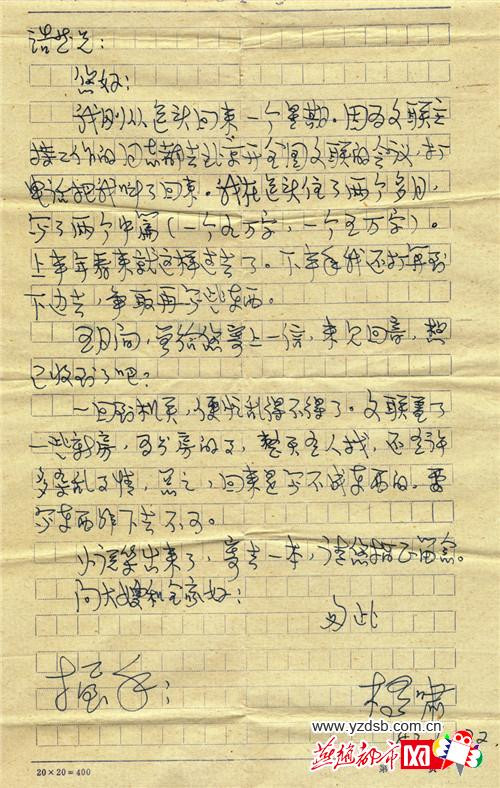 浩然兄：
您好！
我刚从包头回来一个星期。因为文联主
持工作的同志都去北京开全国文联的会议，打
电话把我叫了回来。我在包头住了两个多月，
写了两个中篇（一个九万字，一个五万字）。
上半年看来就这样过去了。下半年我还打算到
下边去，争取再写些东西。
五月间，曾给您寄上一信，未见回音，想
已收到了吧？
一回到机关，便忙乱得不得了。文联盖了
一些新房，为分房的事，整天有人找，还有许
多杂乱事情，总之，回来是写不成东西的，要
写东西非下去不可。
小说集出来了，寄去一本，请您指正留念。
问大嫂和全家好！
匆此
握手！
杨啸
www.yzdsb.com.cn
燕赵都市网
20×20=400
第 页